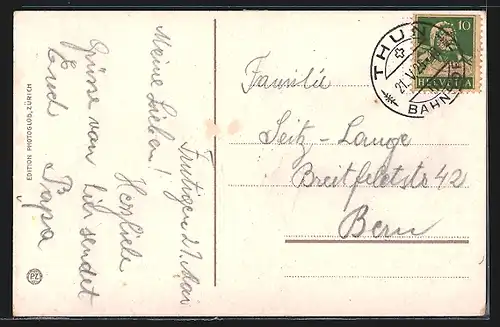 Frutigen 21 Mai
Meine Lieben!
Herzliche
Grüsse von hir sendet
Euch
Papa
EDITION PHOTOGLOB, ZÜRICH
PZ
Familie
Seitz-Lange
Breitfeldstr 42
Bern
THUN
21.V.
BAHN
10
HELVETIA